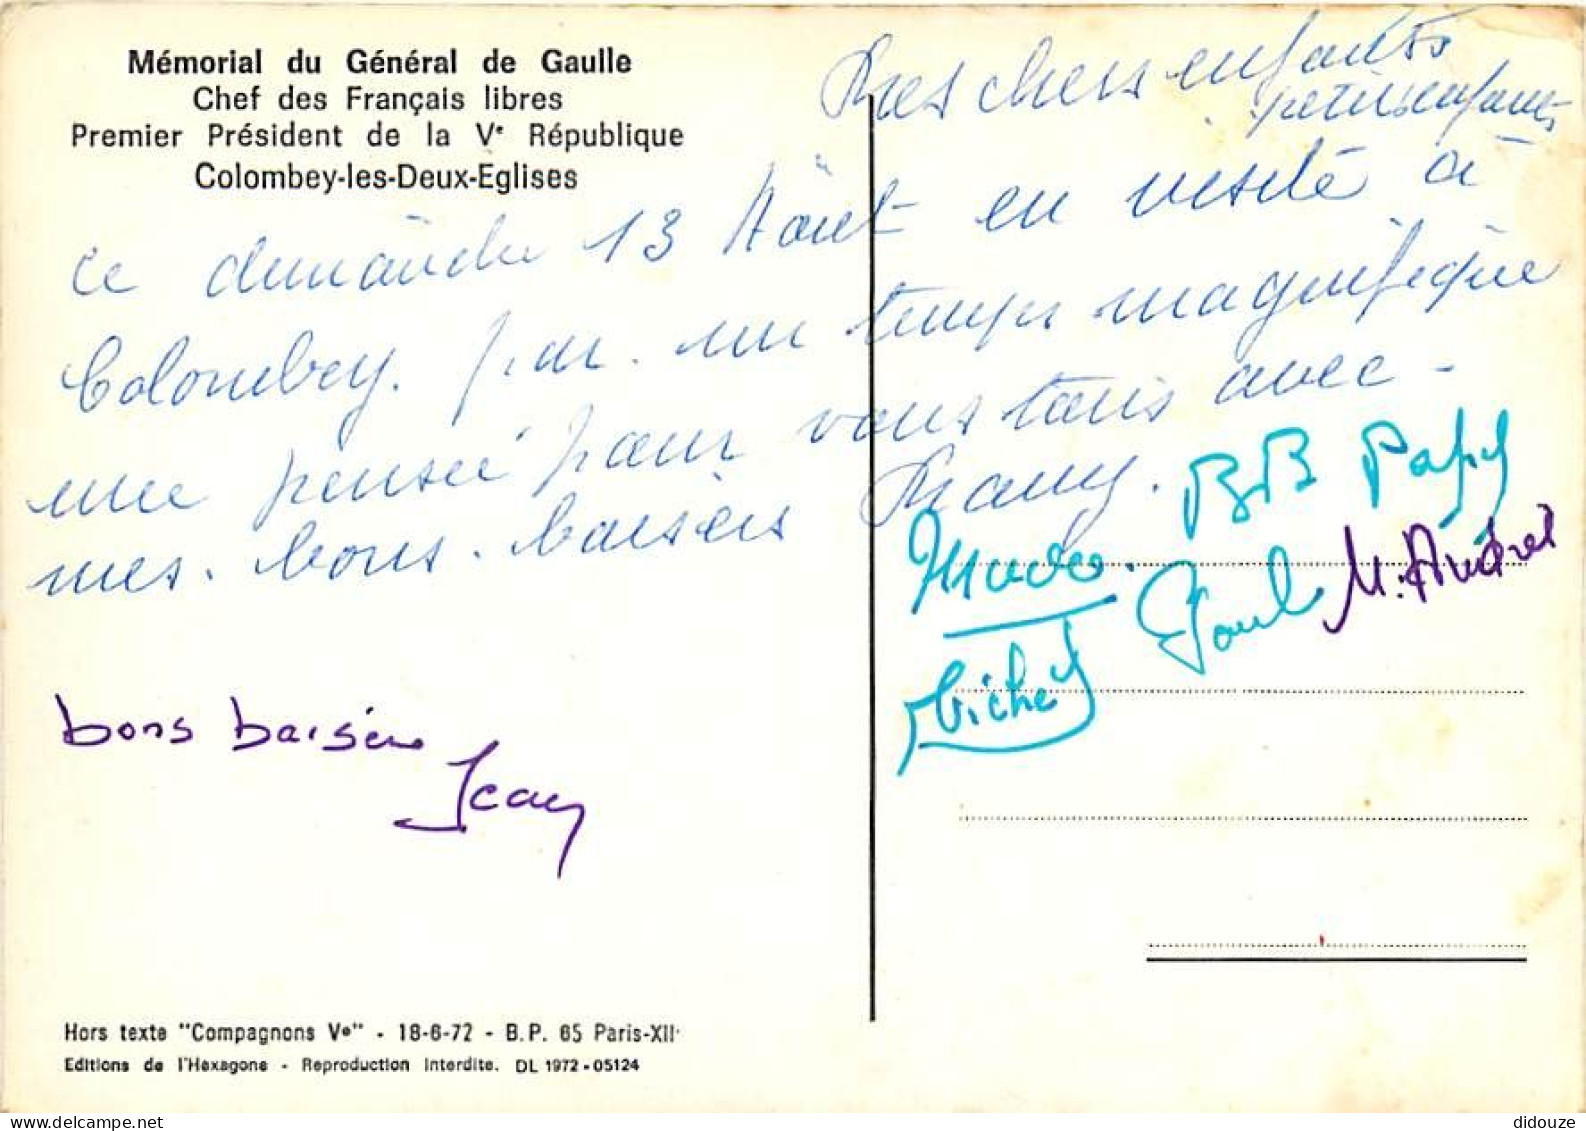 Mémorial du Général de Gaulle
Chef des Français libres
Premier Président de la Vᵉ République
Colombey-les-Deux-Eglises
Mes chers enfants
petits enfants
ce dimanche 13 Août en visite à
Colombey. par. un temps magnifique
une pensée pour vous tous avec -
mes. bons. baisers Mamy.
BB Papy
Mado.
Paul M. Andrée
Michel
bons baisers
Jean
Hors texte "Compagnons Vᵉ" - 18-6-72 - B.P. 65 Paris-XII
Editions de l'Hexagone - Reproduction Interdite. DL 1972-05124
didouze